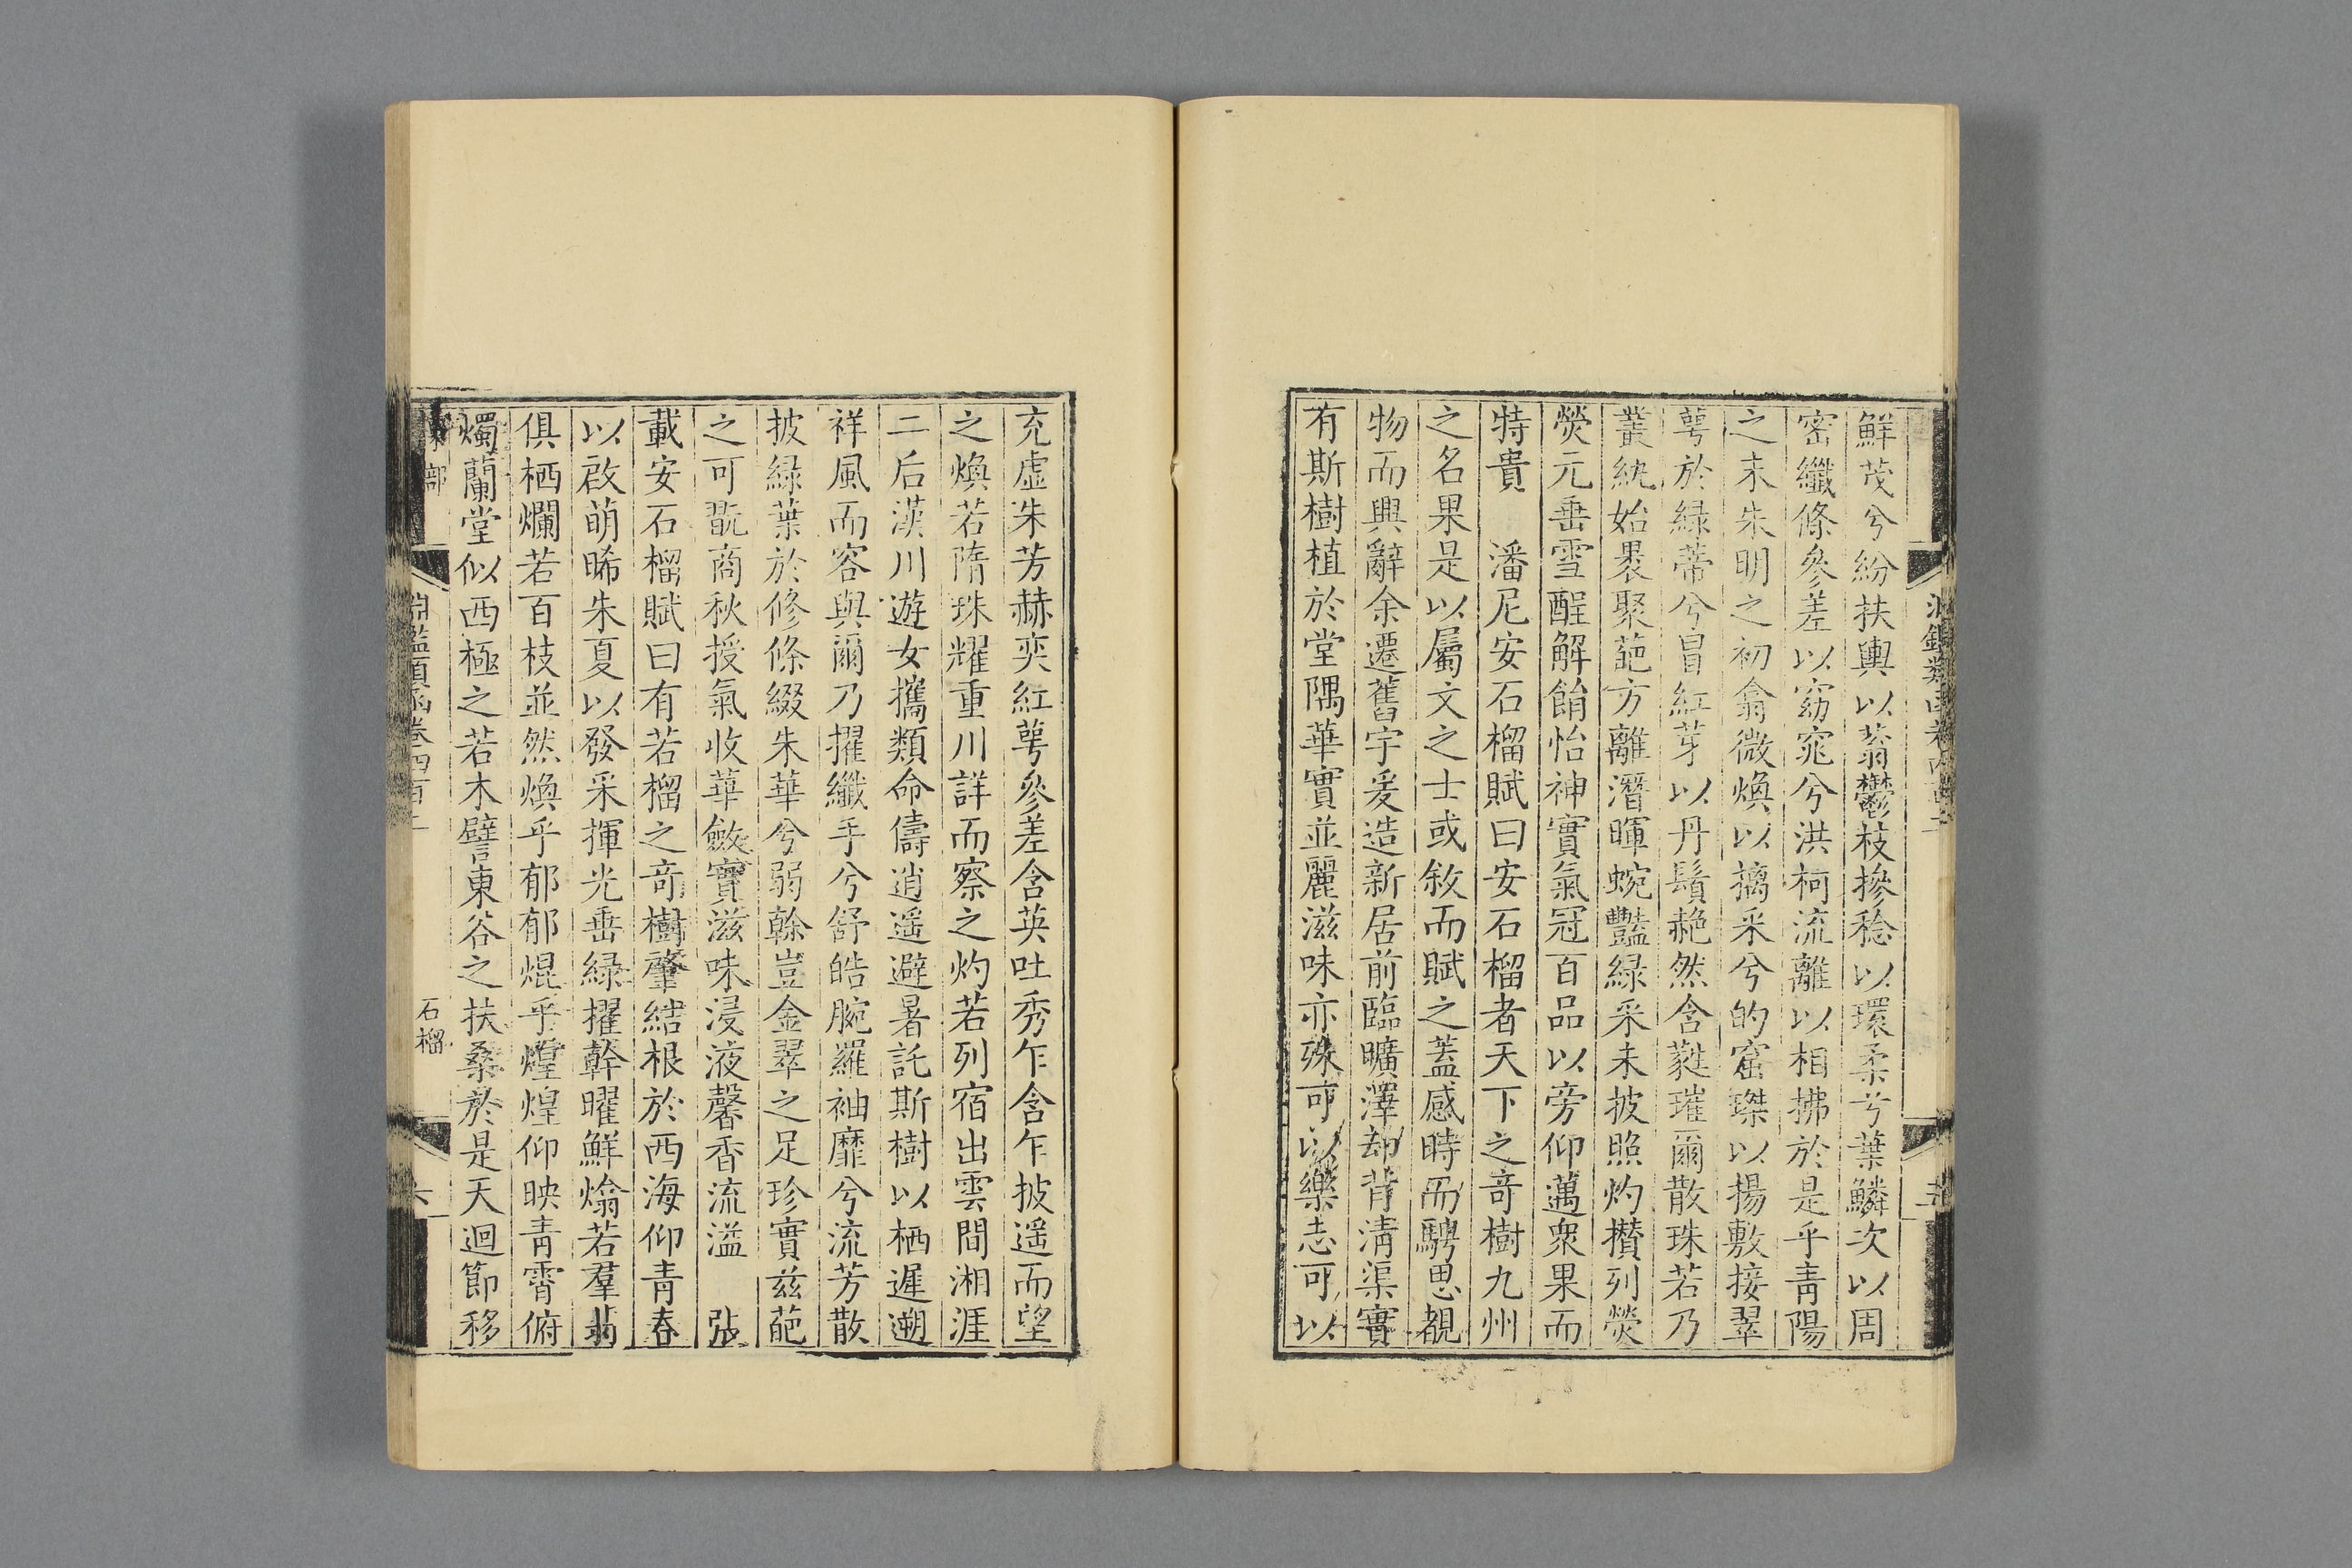 鮮茂兮紛扶輿以蓊鬱枝摻稔以環柔兮葉鱗次以周
密纖條參差以窈窕兮洪柯流離以相拂於是乎青陽
之末朱明之初翕微煥以摛采兮的窋㻮以揚敷接翠
萼於綠蔕兮冒紅芽以丹鬚赩然含蕤璀爾散珠若乃
叢紈始裹聚葩方離潛暉蜿豔綠采未披照灼攅列熒
熒元垂雪酲解飴怡神實氣冠百品以旁仰邁衆果而
特貴　潘尼安石榴賦曰安石榴者天下之竒樹九州
之名果是以屬文之士或敘而賦之蓋感時而騁思覩
物而興辭余遷舊宇爰造新居前臨曠澤却背清渠實
有斯樹植於堂隅華實並麗滋味亦殊可以樂志可以
充虛朱芳赫奕紅萼參差含英吐秀乍含乍披遥而望
之煥若隋珠耀重川詳而察之灼若列宿出雲間湘涯
二后漢川遊女攜類命儔逍遥避暑託斯樹以栖遲遡
祥風而容與爾乃擢纖手兮舒皓腕羅袖靡兮流芳散
披綠葉於修條綴朱華兮弱榦豈金翠之足珍實兹葩
之可翫商秋授氣收華斂實滋味浸液馨香流溢　張
載安石榴賦曰有若榴之竒樹肇結根於西海仰青春
以啟萌晞朱夏以發采揮光垂綠擢幹曜鮮熻若羣翡
俱栖爛若百枝並然煥乎郁郁焜乎煌煌仰映青霄俯
燭蘭堂似西極之若木譬東谷之扶桑於是天迴節移
部
淵鑑類函卷四百二
石榴
六